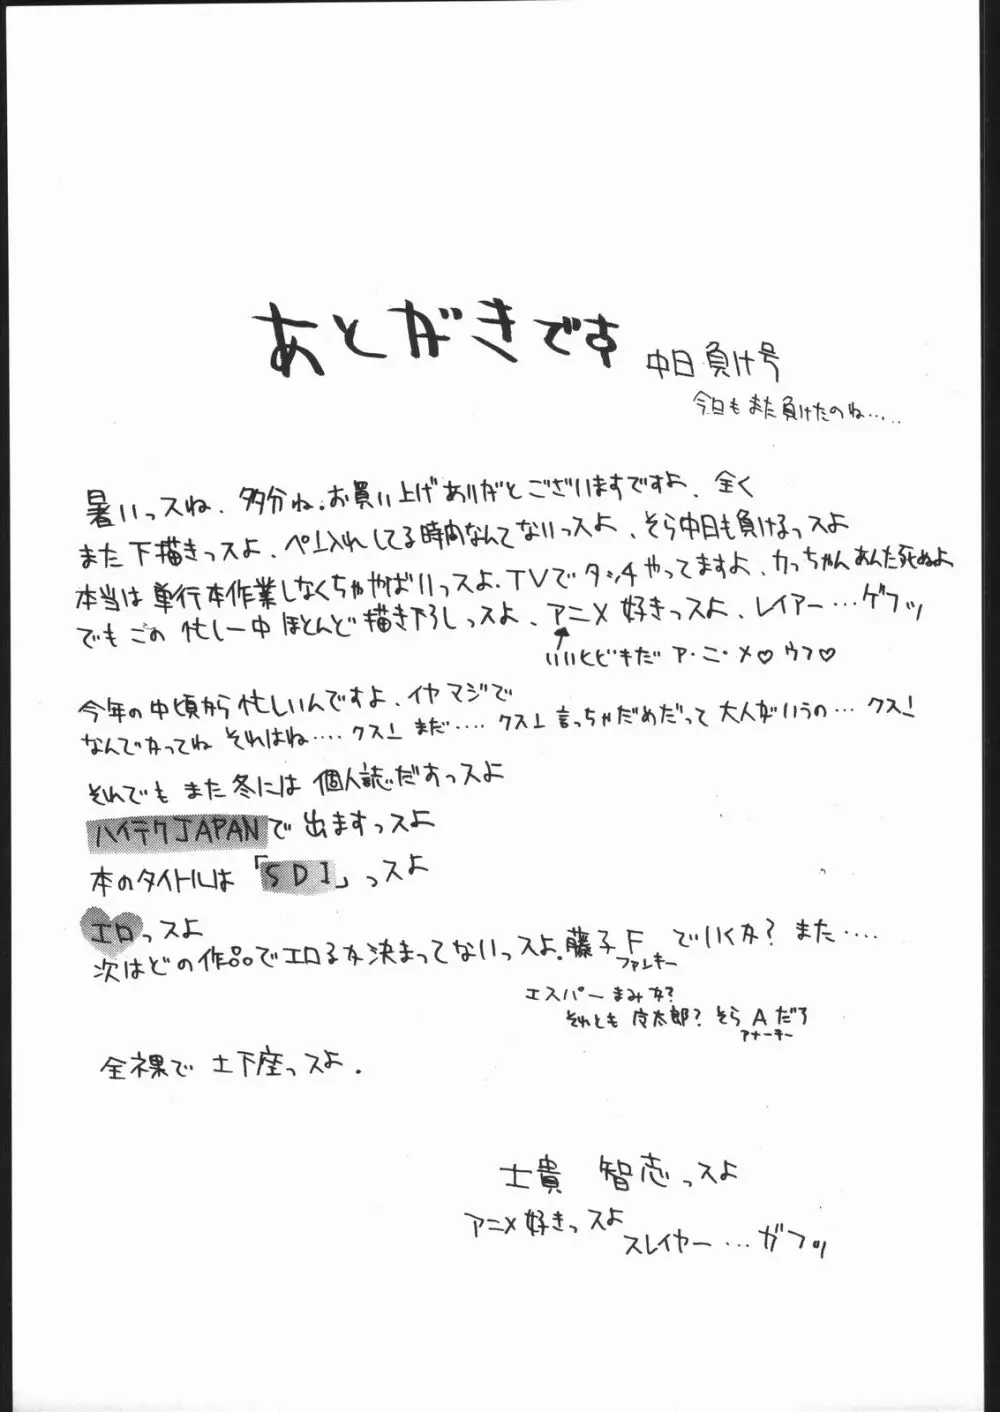 あとがきです
中日負け号
今日もまた負けたのね‥‥‥
暑いっスね、多分ね。お買い上げありがとございますですよ、全く
また下描きっスよ、ペン入れしてる時間なんてないっスよ、そら中日も負けるっスよ
本当は単行本作業しなくちゃやばいっスよ。TVでタッチやってますよ、カっちゃんあんた死ぬよ
でもこの忙しー中ほとんど描き下ろしっスよ、アニメ好きっスよ、レイアー…ゲフッ
いいヒビキだ ア・ニ・メ♡ウフ♡
今年の中頃から忙しいんですよ、イヤマジで
なんでかってね それはね‥‥クスッ まだ‥‥クスッ 言っちゃだめだって大人がいうの…クスッ
それでもまた冬には個人誌だすっスよ
ハイテクJAPANで出ますっスよ
本のタイトルは「SDI」っスよ
エロっスよ
次はどの作品でエロるか決まってないっスよ。藤子Fでいくか? また‥‥
ファンキー
エスパーまみか?
それとも 太郎? そらAだろ
アナーキー
全裸で土下座っスよ.
士貴 智志っスよ
アニメ好きっスよ
スレイヤー…ガフッ